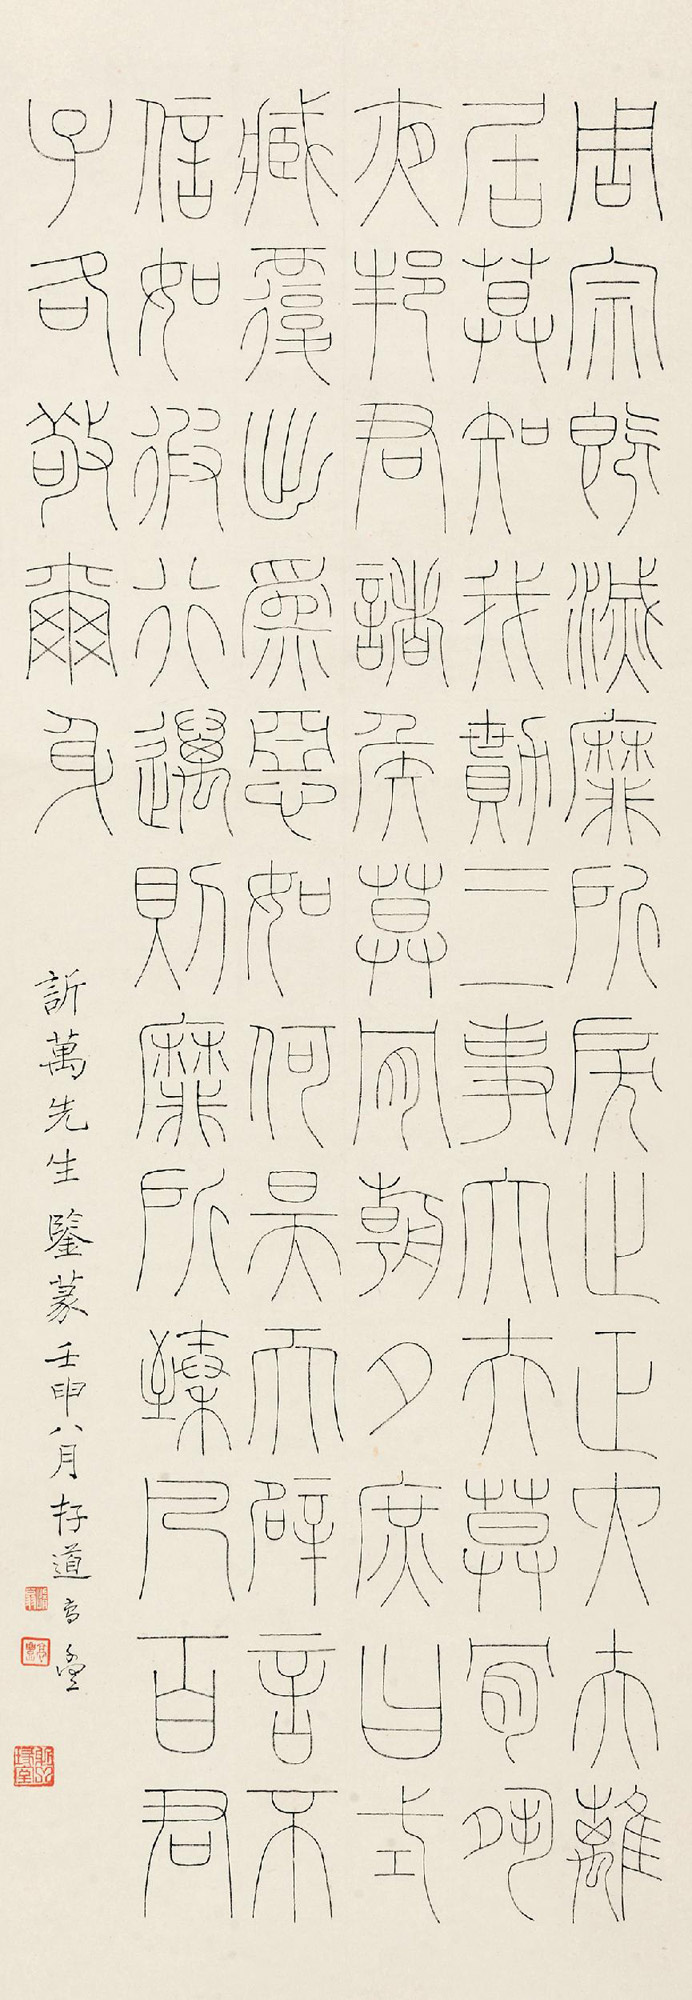 周宗既滅靡所戾止正大夫離
居莫知我勩三事大夫莫肯夙
夜邦君諸侯莫肯朝夕庶曰式
臧覆出爲惡如何昊天辟言不
信如彼行邁則靡所臻凡百君
子各敬爾身
訢萬先生鑒篆壬申八月存道高豐